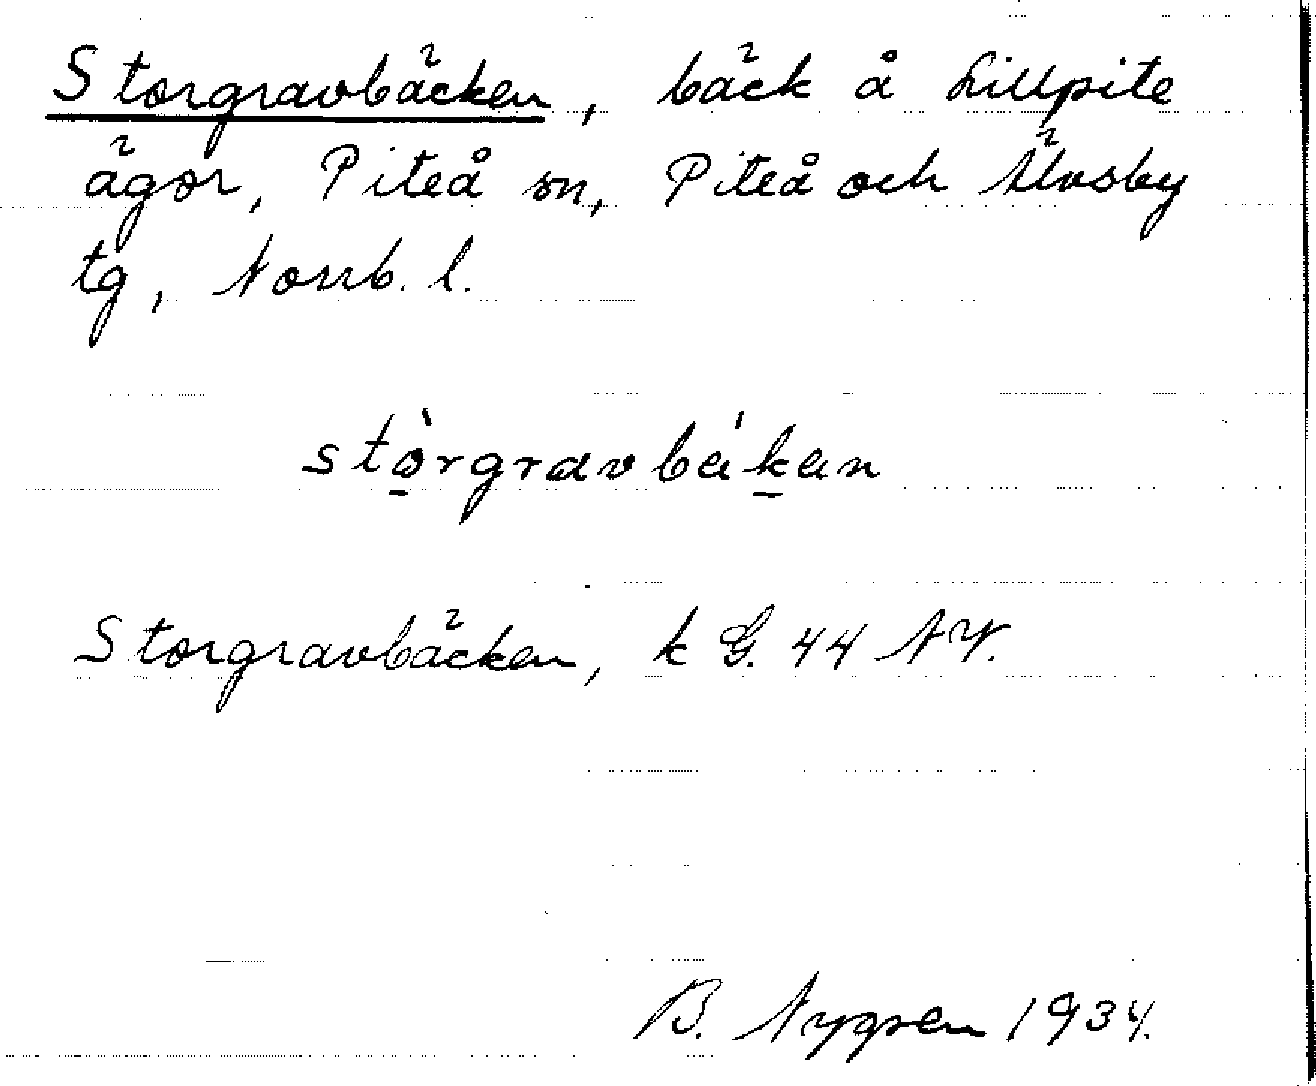 Storgravbäcken, bäck å Lillpite
ägor, Piteå sn, Piteå och Älvsby
tg, Norrb. l.
stòrgravbákan
Storgravbäcken, k G. 44 NV.
B. Nygren 1934.